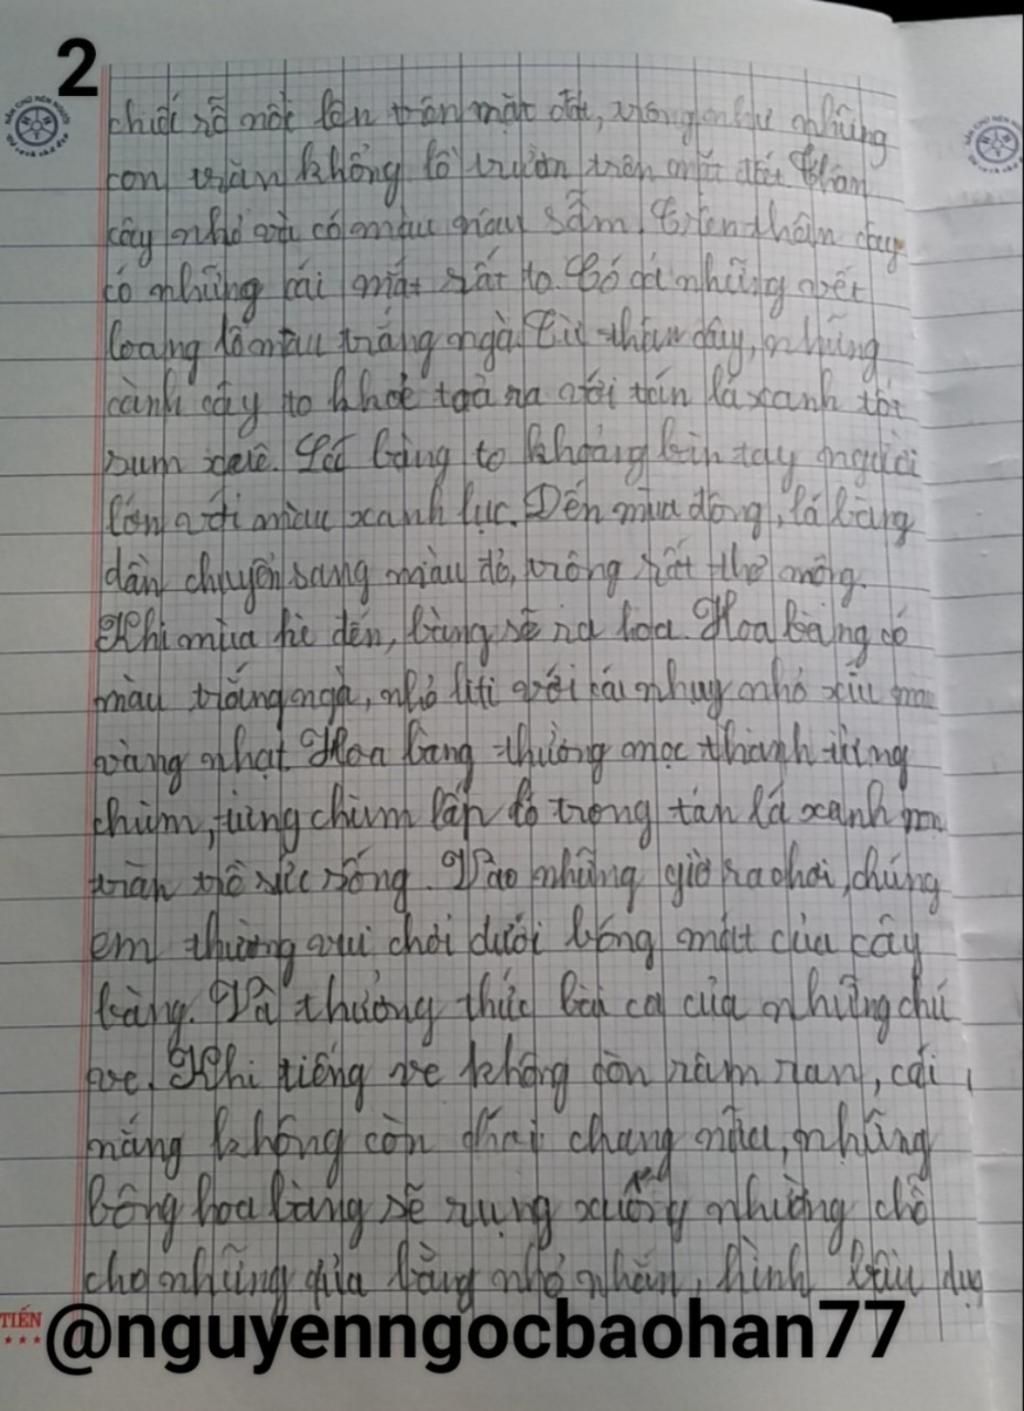 2
chiếc rễ nổi lên trên mặt đất, trông như những
con trăn khổng lồ trườn trên mặt đất. Thân
cây nhỏ và có màu nâu sẫm. Trên thân cây
có những cái mắt rất to. Có cả những vết
loang lổ màu trắng ngà. Từ thân cây, những
cành cây to khoẻ toả ra với tán lá xanh tốt
sum xuê. Lá bàng to khoảng bàn tay người
lớn với màu xanh lục. Đến mùa đông, lá bàng
dần chuyển sang màu đỏ, trông rất thơ mộng.
Khi mùa hè đến, bàng sẽ ra hoa. Hoa bàng có
màu trắng ngà, nhỏ li ti với cái nhuỵ nhỏ xíu
vàng nhạt. Hoa bàng thường mọc thành từng
chùm, từng chùm lấp ló trong tán lá xanh
tràn trề sức sống. Vào những giờ ra chơi, chúng
em thường vui chơi dưới bóng mát của cây
bàng. Và thưởng thức bài ca của những chú
ve. Khi tiếng ve không còn râm ran, cái
nắng không còn chói chang nữa, những
bông hoa bàng sẽ rụng xuống nhường chỗ
cho những quả bàng nhỏ nhắn, hình bầu dục
TIẾN
@nguyenngocbaohan77